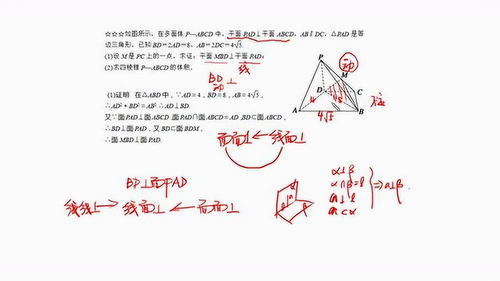 ☆☆☆如图所示，在多面体 P—ABCD 中，平面 PAD⊥平面 ABCD，AB∥DC，△PAD 是等
边三角形，已知 BD=2AD=8，AB=2DC=4√5.
(1)设 M 是 PC 上的一点，求证：平面 MBD⊥平面 PAD；
(2)求四棱锥 P—ABCD 的体积．
线
BD⊥
动
(1)证明 在△ABD 中，∵AD=4，BD=8，AB=4√5，
∴AD²+BD²=AB².∴AD⊥BD.
又∵面 PAD⊥面 ABCD，面 PAD∩面 ABCD=AD，BD⊂面 ABCD，
∴BD⊥面 PAD，又 BD⊂面 BDM，
∴面 MBD⊥面 PAD.
动
P
M
D
C
4
8
A
B
4√5
面面⊥←线面⊥
BD⊥面PAD
线线⊥→线面⊥←面面⊥
α⊥β
α∩β=l
a⊥l
a⊂α
⇒a⊥β